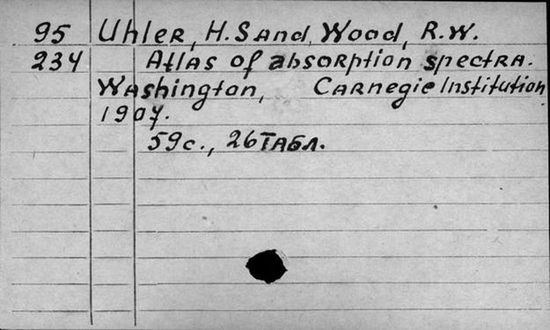 95 Uhler, H. Sand, Wood, R.W.
234 Atlas of absorption spectra.
Washington, Carnegie Institution
1907.
59с., 26 табл.